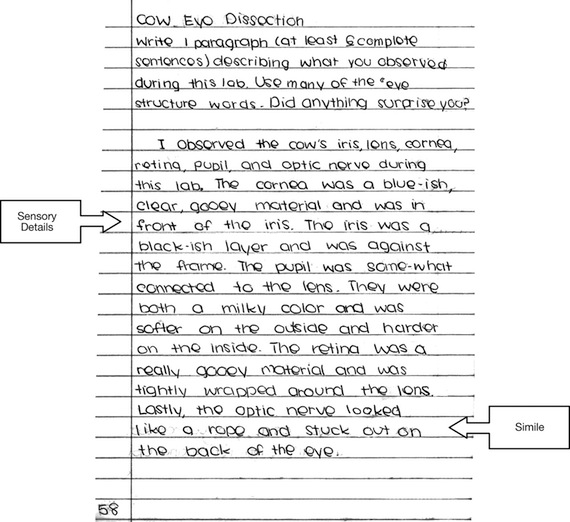 Cow Eye Dissection
Write 1 paragraph (at least 5 complete
sentences) describing what you observed
during this lab. Use many of the "eye
structure words. Did anything surprise you?
I observed the cow's iris, lens, cornea,
retina, pupil, and optic nerve during
this lab. The cornea was a blue-ish,
clear, gooey material and was in
front of the iris. The iris was a
black-ish layer and was against
the frame. The pupil was some-what
connected to the lens. They were
both a milky color and was
softer on the outside and harder
on the inside. The retina was a
really gooey material and was
tightly wrapped around the lens.
Lastly, the optic nerve looked
like a rope and stuck out on
the back of the eye.
58
Sensory
Details
Simile